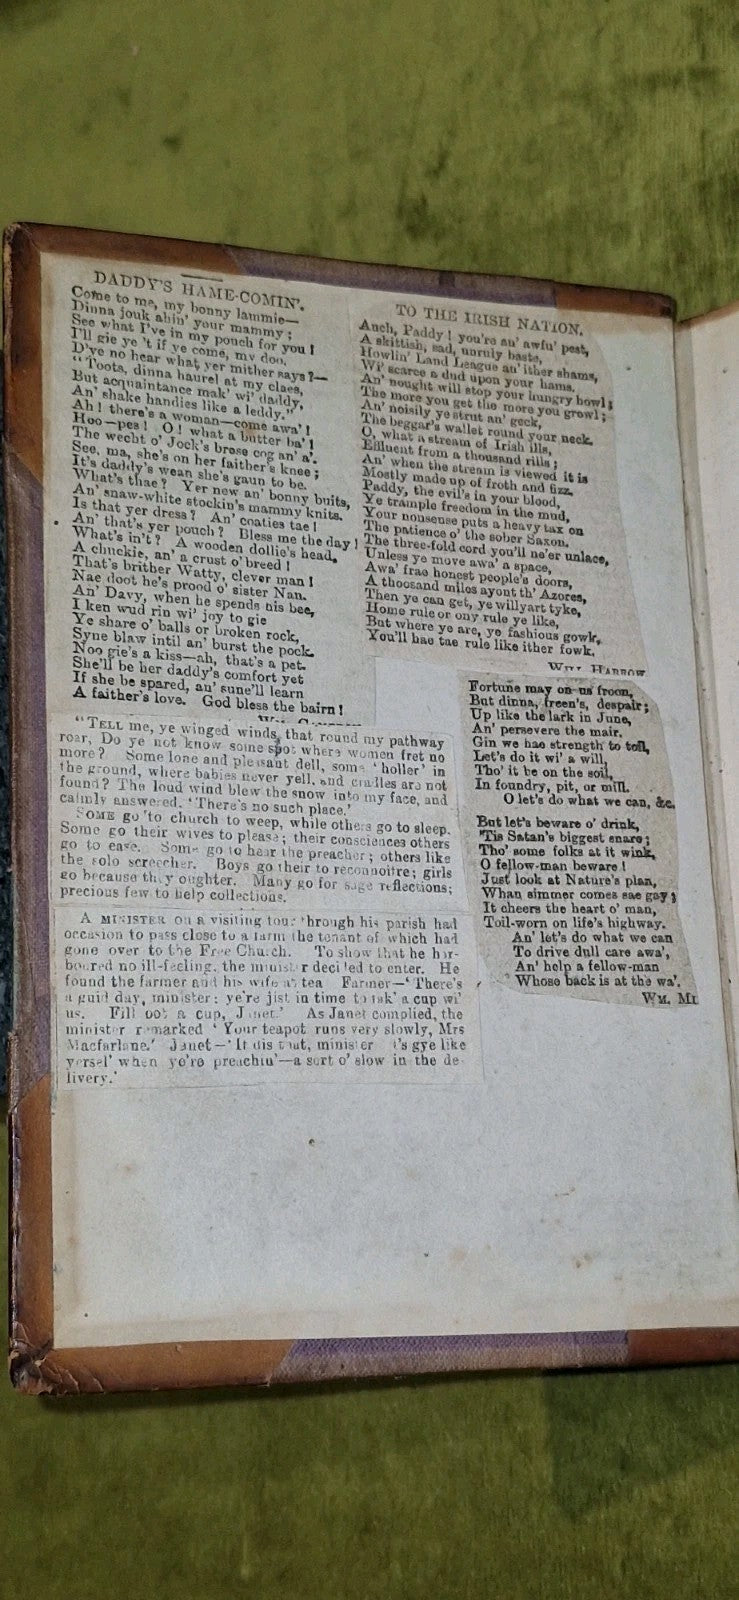 DADDY'S HAME-COMIN'.
Come to me, my bonny lammie—
Dinna jouk ahin' your mammy;
See what I've in my pouch for you!
I'll gie ye 't if ye come, my doo.
D'ye no hear what yer mither says?—
"Toots, dinna haurel at my claes,
But acquaintance mak' wi' daddy,
An' shake handies like a leddy."
Ah! there's a woman—come awa'!
Hoo—pes! O! what a butter ba'!
The wecht o' Jock's brose cog an' a'.
See, ma, she's on her faither's knee;
It's daddy's wean she's gaun to be.
What's thae? Yer new an' bonny buits,
An' snaw-white stockin's mammy knits.
Is that yer dress? An' coaties tae!
An' that's yer pouch? Bless me the day!
What's in't? A wooden dollie's head,
A chuckie, an' a crust o' breed!
That's brither Watty, clever man!
Nae doot he's prood o' sister Nan.
An' Davy, when he spends his bee,
I ken wud rin wi' joy to gie
Ye share o' balls or broken rock,
Syne blaw intil an' burst the pock.
Noo gie's a kiss—ah, that's a pet.
She'll be her daddy's comfort yet
If she be spared, an' sune'll learn
A faither's love. God bless the bairn!
"TELL me, ye winged winds, that round my pathway
roar, Do ye not know some spot where women fret no
more? Some lone and pleasant dell, some 'holler' in
the ground, where babies never yell, and cradles are not
found? The loud wind blew the snow into my face, and
calmly answered, 'There's no such place.'
SOME go to church to weep, while others go to sleep.
Some go their wives to please; their consciences others
go to ease. Some go to hear the preacher; others like
the solo screecher. Boys go their to reconnoitre; girls
go because they oughter. Many go for sage reflections;
precious few to help collections.
A MINISTER on a visiting tour through his parish had
occasion to pass close to a farm the tenant of which had
gone over to the Free Church. To show that he har-
boured no ill-feeling, the minister decided to enter. He
found the farmer and his wife at tea Farmer—'There's
a guid day, minister: ye're jist in time to tak' a cup wi'
us. Fill oot a cup, Janet.' As Janet complied, the
minister remarked 'Your teapot runs very slowly, Mrs
Macfarlane.' Janet—'It dis that, minister i's gye like
yersel' when ye're preachin'—a sort o' slow in the de-
livery.'
TO THE IRISH NATION.
Auch, Paddy! you're an' awfu' pest,
A skittish, sad, unruly baste,
Howlin' Land League an' ither shams,
Wi' scarce a dud upon your hams.
An' nought will stop your hungry howl;
The more you get the more you growl;
An' noisily ye strut an' geck,
The beggar's wallet round your neck.
O, what a stream of Irish ills,
Effluent from a thousand rills;
An' when the stream is viewed it is
Mostly made up of froth and fizz.
Paddy, the evil's in your blood,
Ye trample freedom in the mud,
Your nonsense puts a heavy tax on
The patience o' the sober Saxon.
The three-fold cord you'll ne'er unlace,
Unless ye move awa' a space,
Awa' frae honest people's doors,
A thoosand miles ayont th' Azores,
Then ye can get, ye willyart tyke,
Home rule or ony rule ye like,
But where ye are, ye fashious gowk,
You'll hae tae rule like ither fowk.
WILL HARROW
Fortune may on us froon,
But dinna, freen's, despair;
Up like the lark in June,
An' persevere the mair.
Gin we hae strength to toil,
Let's do it wi' a will,
Tho' it be on the soil,
In foundry, pit, or mill.
O let's do what we can, &c.
But let's beware o' drink,
'Tis Satan's biggest snare;
Tho' some folks at it wink,
O fellow-man beware!
Just look at Nature's plan,
Whan simmer comes sae gay;
It cheers the heart o' man,
Toil-worn on life's highway.
An' let's do what we can
To drive dull care awa',
An' help a fellow-man
Whose back is at the wa'.
WM. MI